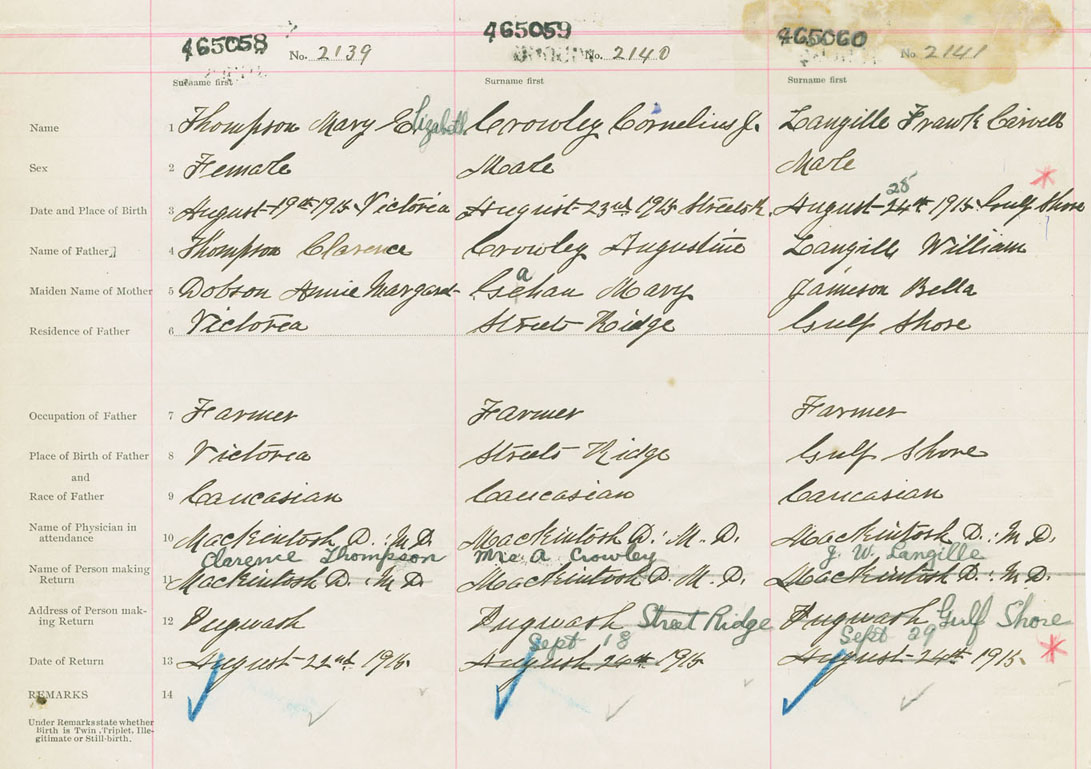 465058 465059 465060
No. 2139 No. 2140 No. 2141
Surname first Surname first Surname first
Name 1 Thompson Mary Elizabeth Crowley Cornelius J. Langille Frank Carvell
Sex 2 Female Male Male
25
Date and Place of Birth 3 August 19th 1915 Victoria August 23rd 1915 Streets R. August 24th 1915 Gulf Shore
Name of Father 4 Thompson Clarence Crowley Augustine Langille William
a
Maiden Name of Mother 5 Dobson Annie Margaret Gehan Mary Jameson Bella
Residence of Father 6 Victoria Streets Ridge Gulf Shore
Occupation of Father 7 Farmer Farmer Farmer
Place of Birth of Father 8 Victoria Streets Ridge Gulf Shore
and
Race of Father 9 Caucasian Caucasian Caucasian
Name of Physician in
attendance 10 MacKintosh D. M.D. MacKintosh D. M.D. MacKintosh D. M.D.
Clarence Thompson Mrs. A Crowley J. W. Langille
Name of Person making
Return 11 MacKintosh D. M.D. MacKintosh D. M.D. MacKintosh D. M.D.
Address of Person mak-
ing Return 12 Pugwash Pugwash Street Ridge Pugwash Gulf Shore
Sept 18 Sept 29
Date of Return 13 August 22nd 1915 August 24th 1915 August 24th 1915
REMARKS 14
Under Remarks state whether
Birth is Twin, Triplet, Ille-
gitimate or Still-birth.